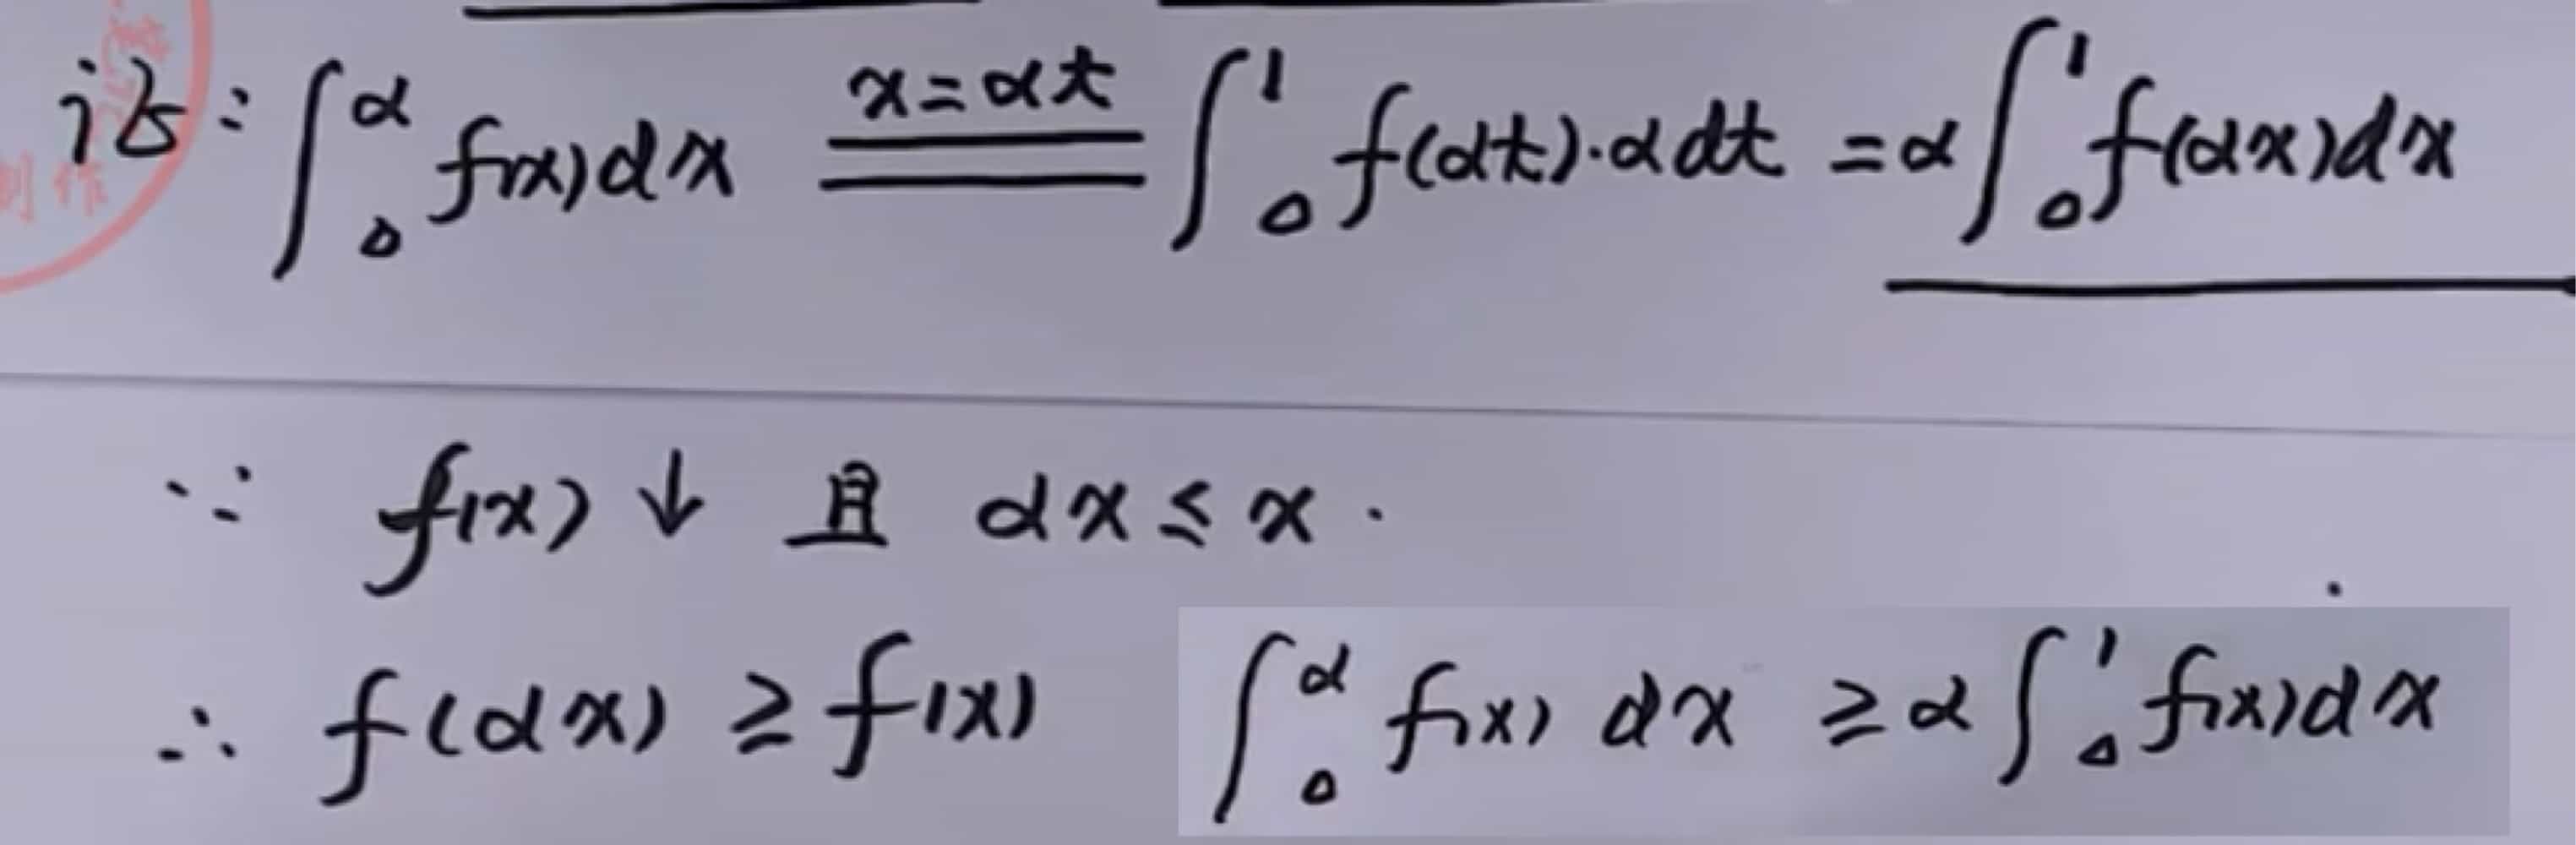 证: ∫₀^α f(x)dx \xlongequal{x=αt} ∫₀¹ f(αt)·αdt = α∫₀¹ f(αx)dx
制作
∵ f(x)↓ 且 αx ≤ x.
∴ f(αx) ≥ f(x) ∫₀^α f(x) dx ≥ α∫₀¹ f(x)dx